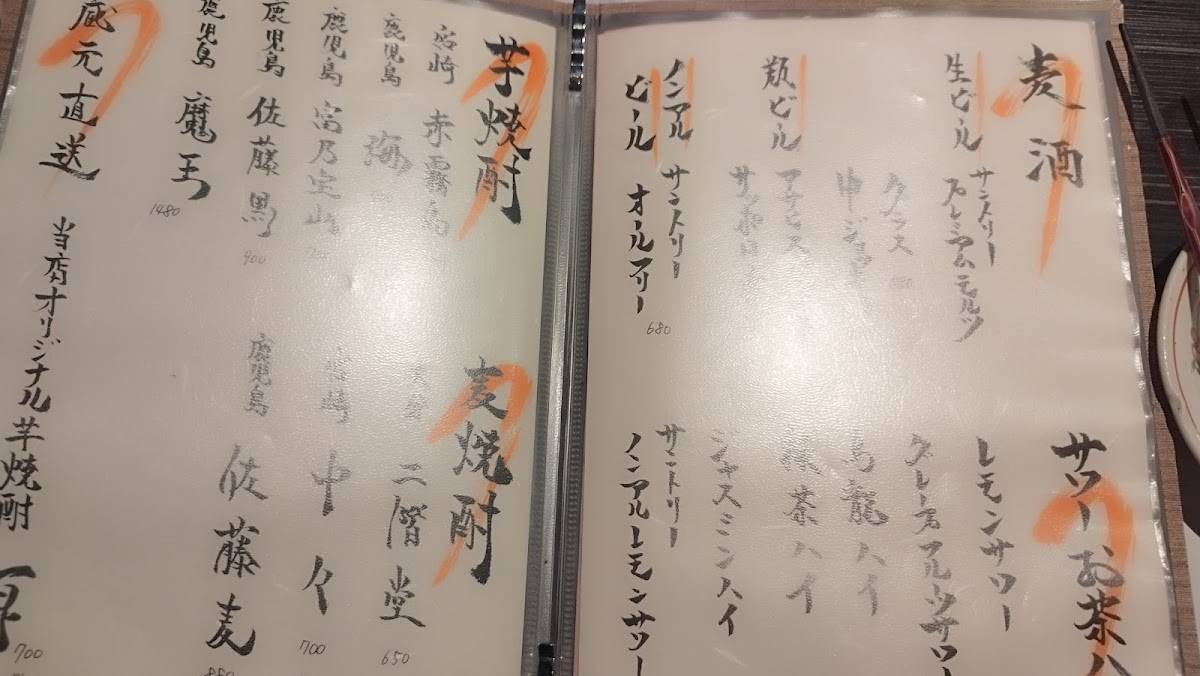 麦酒
生ビール
サントリー
プレミアムモルツ
グラス
中ジョッキ
瓶ビール
アサヒ
サッポロ
ノンアル
ビール
サントリー
オールフリー
680
サワーお茶ハ
レモンサワー
グレープフルーツサワー
烏龍ハイ
緑茶ハイ
ジャスミンハイ
サントリー
ノンアルレモンサワー
芋焼酎
宮崎 赤霧島
鹿児島 海
鹿児島 富乃宝山
鹿児島 佐藤黒
900
鹿児島 魔王
1480
麦焼酎
二階堂
650
中々
700
鹿児島 佐藤麦
蔵元直送
当店オリジナル芋焼酎
700